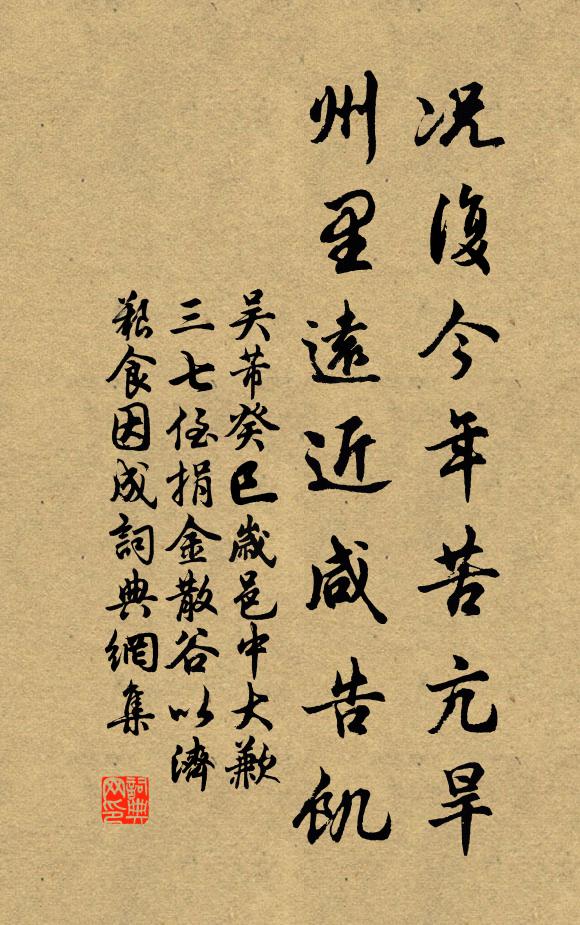 况復今年苦亢旱
州里遠近咸告飢
吴芾癸巳歲邑中大歉
三七侄捐金散谷以濟
艱食因成詞典網集
詞典網印